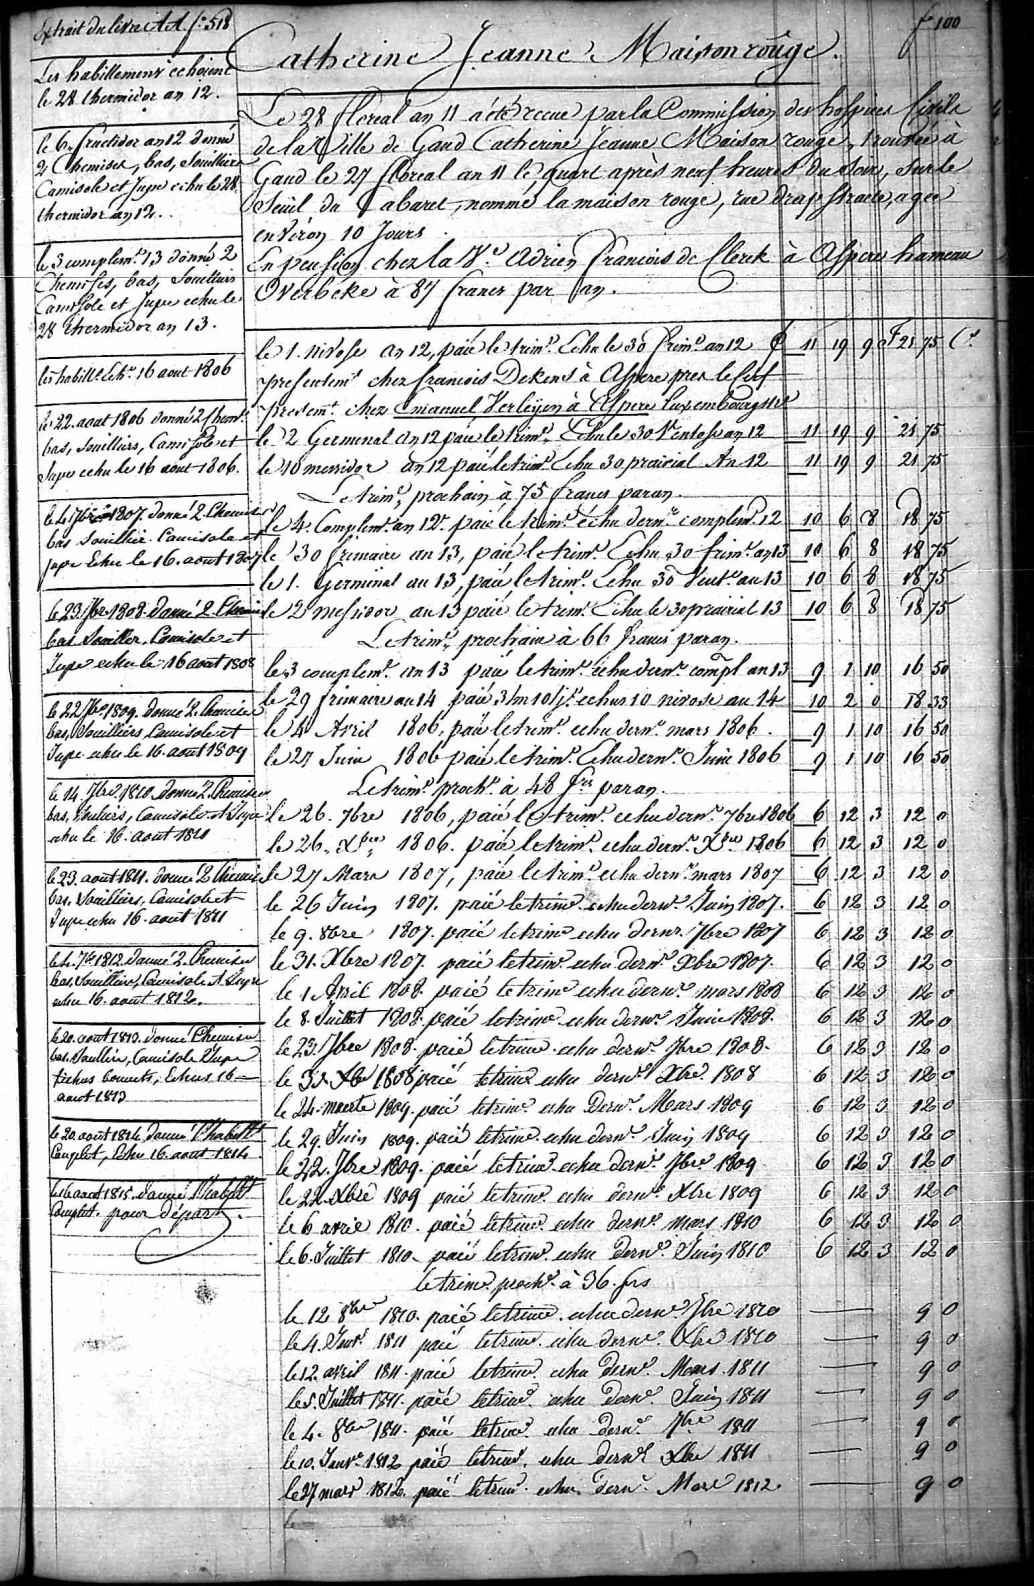 Extrait du livre AA. f.º 518
f.º 100
Catherine Jeanne Maison rouge.
Les habillemens echoient
le 28 thermidor an 12.
le 6. fructidor an 12 donné
2 Chemises, bas, Souilliers
Camisole et Jupe echu le 28
thermidor an 12.
le 3 complem.re 13 donné 2
Chemises, bas, Souilliers
Camisole et Jupe echu le
28 thermidor an 13.
les habill.s Ech.s 16 aout 1806
le 22. aout 1806 donné 2 Chem.s
bas, Souilliers, Camisole et
Jupe echu le 16 aout 1806.
le 4. 7bre 1807. donné 2. Chemises
bas Souillier. Camisole et
jupe Echu le 16. aout 1807
le 23. 7bre 1808. donné 2. Chemises
bas Souillier. Camisole et
Jupe echu le 16 aout 1808
le 22 7bre 1809. donné 2. Chemises
bas, Souilliers, Camisole et
Jupe echu le 16. aout 1809
le 14. 7bre. 1810. donné 2. Chemises
bas, Souliers, Camisole et Jupe
echu le 16. aout 1810
le 23. aout 1811. donné 2 Chemises
bas. Souilliers, Camisole et
Jupe echu 16. aout 1811
le 4. 7bre 1812. donné 2. Chemises
bas, Souilliers, Camisole et Jupe
echu 16. aout 1812.
le 20. aout 1813. donné Chemises
bas. Soullier, Camisole Jupe
fichus bonnets, Echus 16
aout 1813
le 20. aout 1814. donné l'habill.t
Complet, Echu 16. aout 1814
le 16. aout 1815. donné l'habill.t
Complet. pour départ.
Le 28 floreal an 11 a été recue par la Commission des hospices Civils
de la Ville de Gand Catherine Jeanne Maison rouge, trouvée à
Gand le 27 floreal an 11 le quart après neuf heures du Soir, sur le
Seuil du Cabaret, nommé la maison rouge, rue drap straete, agée
environ 10 Jours.
En pension chez la V.e Adrien Francois de Clerck à Aspere hameau
Overbeke à 87 francs par an.
le 1. nivose an 12, paié le trim.e Echu le 30 frim.e an 12 11 19 9 F 21 75 C.s
presentem.t chez francois Dekens à Aspere pres le Cerf
presem.t chez Emanuel Verleijen à Aspere Luxembourgstr
le 2 Germinal an 12 paié le trim.e Echu le 30 Ventose an 12 11 19 9 21 75
le 10 messidor an 12 paié le trim.e Echu 30 prairial An 12 11 19 9 21 75
Le trim.e prochain à 75 francs par an.
le 4. Complem.e an 12. paié le trim.e echu dern.r complem.e 12 10 6 8 18 75
le 30 frimaire an 13, paié le trim.e Echu 30 frim.e an 13 10 6 8 18 75
le 1. Germinal an 13, paié le trim.e Echu 30 Vent.e an 13 10 6 8 18 75
le 2 messidor an 13 paié le trim.e Echu le 30 prairial 13 10 6 8 18 75
Le trim.e prochain à 66 francs par an.
le 3 complem.e an 13 paié le trim.e echu dern.r compl an 13 9 1 10 16 50
le 29 frimaire an 14 paié 3 m 10 j.s echus 10 nivose an 14 10 2 0 18 33
le 4 Avril 1806, paié le trim.e echu dern.r mars 1806. 9 1 10 16 50
le 27 Juin 1806 paié le trim.e Echu dern.r Juin 1806 9 1 10 16 50
Le trim.e proch.n à 48 frs par an.
le 26. 7bre 1806, paié le trim.e echu dern.r 7bre 1806 6 12 3 12 0
le 26. Xbre 1806. paié le trim.e echu dern.r Xbre 1806 6 12 3 12 0
le 27 Mars 1807, paié le trim.e echu dern.r mars 1807 6 12 3 12 0
le 26 Juin 1807. paié le trim.e echu dern.r Juin 1807. 6 12 3 12 0
le 9. 8bre 1807. paié le trim.e echu dern.r 7bre 1807 6 12 3 12 0
le 31. Xbre 1807. paié le trim.e echu dern.r Xbre 1807. 6 12 3 12 0
le 1 Avril 1808. paié le trim.e echu dern.r mars 1808 6 12 3 12 0
le 8. Juillet 1808. paié le trim.e echu dern.r Juin 1808. 6 12 3 12 0
le 23. 7bre 1808. paié le trim.e echu dern.r 7bre 1808. 6 12 3 12 0
le Xbre 1808 paié le trim.e echu dern.r Xbre. 1808 6 12 3 12 0
le 24. maerte 1809. paié le trim.e echu Dern.r Mars 1809 6 12 3 12 0
le 29. Juin 1809. paié le trim.e echu dern.r Juin 1809 6 12 3 12 0
le 22. 7bre 1809. paié le trim.e echu dern.r 7bre 1809 6 12 3 12 0
le 22. Xbre 1809 paié le trim.e echu dern.r Xbre 1809 6 12 3 12 0
le 6 avril 1810. paié le trim.e echu dern.r mars 1810 6 12 3 12 0
le 6. Juillet 1810. paié le trim.e echu dern.r Juin 1810 6 12 3 12 0
le trim.e proch.n à 36. frs
le 12 8bre 1810. paié le trim.e echu dern.r 7bre 1810 9 0
le 4. Janv.r 1811 paié le trim.e echu dern.r Xbre 1810 9 0
le 12 avril 1811. paié le trim.e echu dern.r Mars. 1811 9 0
le 5. Juillet 1811. paié le trim.e echu dern.r Juin 1811 9 0
le 4. 8bre 1811. paié le trim.e echu dern.r 7bre 1811 9 0
le 10. Janv.r 1812 paié le trim.e echu dern.r Xbre 1811 9 0
le 27 mars 1812. paié le trim.e echu dern.r Mars 1812. 9 0
le